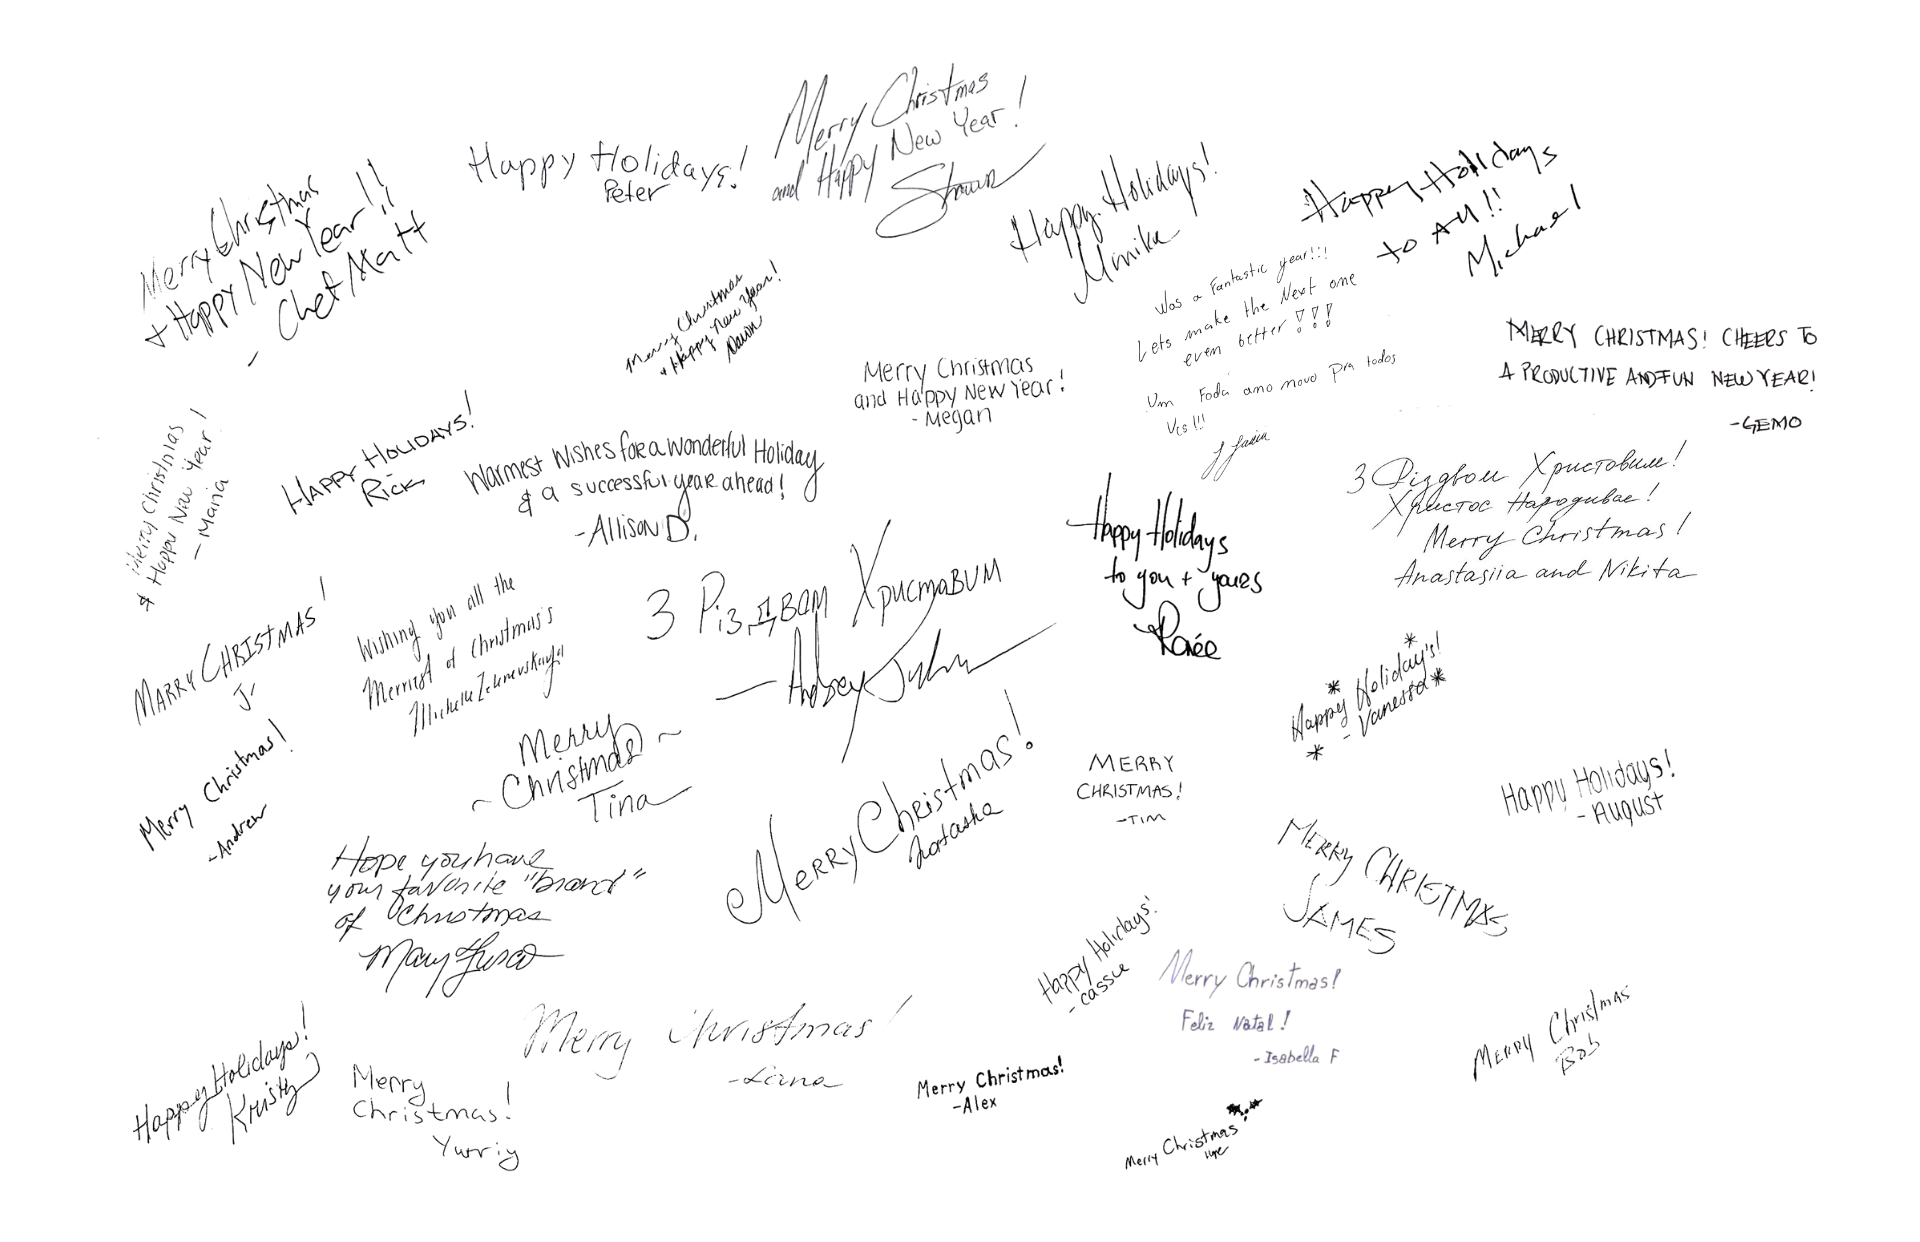 Merry Christmas
and Happy New Year!
Shawn
Happy Holidays!
Peter
Merry Christmas
+ Happy New Year!!
- Chef Matt
Happy Holidays!
Monika
Happy Holidays
to All!!
Michael
Merry Christmas
+ Happy New Year!
Dawn
Was a Fantastic year!!!
Lets make the Next one
even better!!!
Um Foda ano novo pra todos
Vcs!!!
MERRY CHRISTMAS! CHEERS TO
A PRODUCTIVE AND FUN NEW YEAR!
-GEMO
Merry Christmas
and Happy New Year!
- Megan
Merry Christmas
& Happy New Year!
- Maria
HAPPY HOLIDAYS!
RICK
Warmest Wishes for a wonderful Holiday
& a successful year ahead!
-Allison D.
З Різдвом Христовим!
Христос Народивае!
Merry Christmas!
Anastasiia and Nikita
Happy Holidays
to you + yours
Renée
З Різдвам Христавим
MARRY CHRISTMAS!
J-
Wishing you all the
Merriest of Christmas's
Happy Holiday's!
- Vanessa
Merry
~ Christmas ~
Tina
Merry Christmas!
-Andrew
Merry Christmas!
Natasha
MERRY
CHRISTMAS!
-TIM
Happy Holidays!
- August
MERRY CHRISTMAS
JAMES
Hope you have
your favorite "brand"
of Christmas
Mary Fusco
Happy Holidays!
- Cassie
Merry Christmas!
Feliz Natal!
- Isabella F
Merry Christmas
Bob
Merry Christmas!
-Liana
Happy Holidays!
Kristy
Merry
Christmas!
Yuriy
Merry Christmas!
-Alex
Merry Christmas